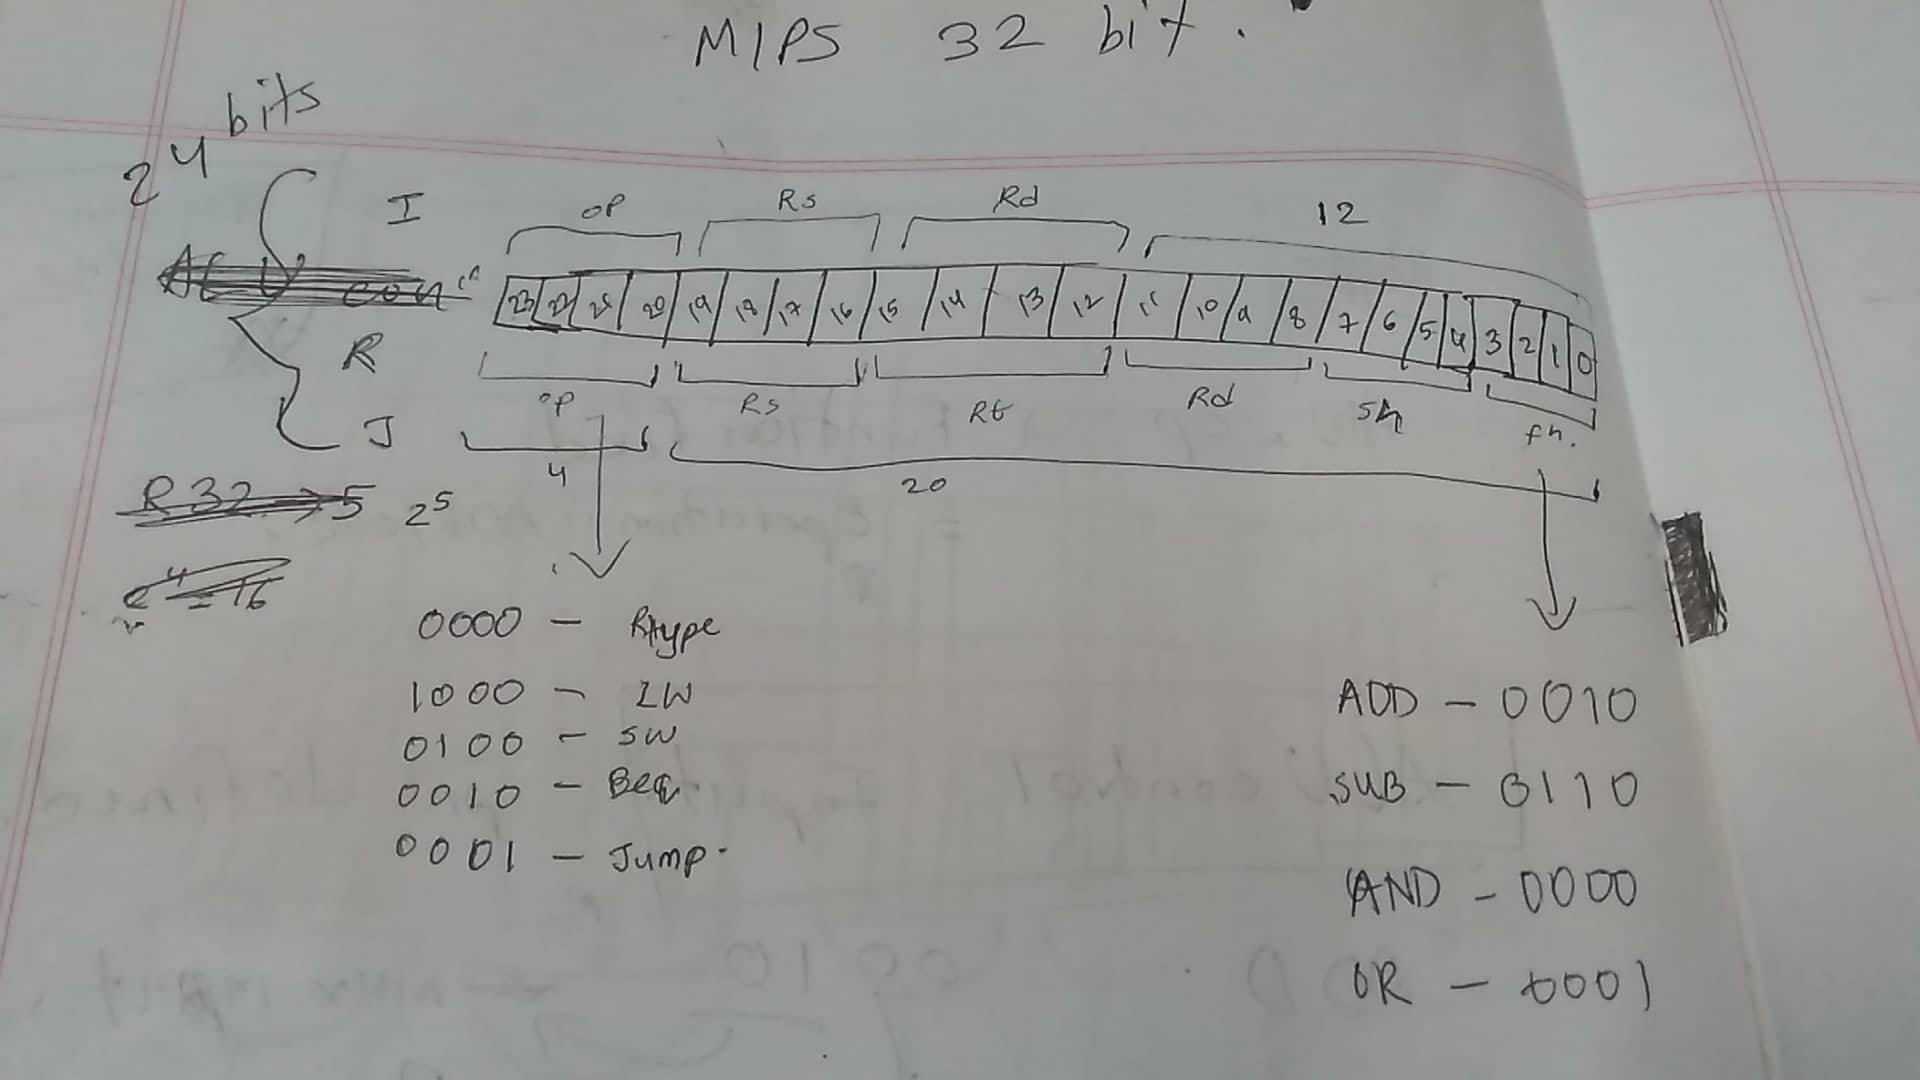 MIPS 32 bit.
24 bits
I
op Rs Rd 12
23 22 21 20 19 18 17 16 15 14 13 12 11 10 9 8 7 6 5 4 3 2 1 0
R
op Rs Rt Rd sh fn.
J
4 20
R32 → 5 2⁵
2⁴ = 16
0000 - Rtype
1000 - LW
0100 - SW
0010 - Beq
0001 - Jump.
ADD - 0010
SUB - 0110
AND - 0000
OR - 0001